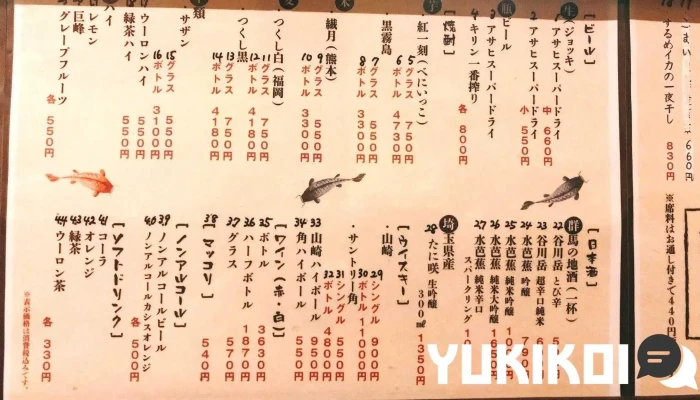 するめイカの一夜干し
830円
660円
※席料はお通し付きで440円
[ビール]
生(ジョッキ)
1 アサヒスーパードライ
中 660円
小 550円
瓶ビール
3 アサヒスーパードライ
4 キリン一番搾り
各 800円
[焼酎]
紅一刻(べにいっこ)
5 グラス 750円
6 ボトル 4730円
黒霧島
7 グラス 550円
8 ボトル 3300円
繊月(熊本)
9 グラス 550円
10 ボトル 3300円
つくし白(福岡)
11 グラス 750円
12 ボトル 4180円
つくし黒
13 グラス 750円
14 ボトル 4180円
サザン
15 グラス 550円
16 ボトル 3100円
ウーロンハイ 550円
緑茶ハイ 550円
レモン
巨峰
グレープフルーツ
各 550円
[日本酒]
群馬の地酒(一杯)
22 谷川岳 とび辛
23 谷川岳 超辛口純米
24 水芭蕉 吟醸 790円
25 水芭蕉 純米吟醸
26 水芭蕉 純米大吟醸 1650円
27 水芭蕉 純米辛口
スパークリング
埼玉県産
28 たに咲 生吟醸
300ml 1350円
[ウイスキー]
・山崎
29 シングル 900円
30 ボトル
・サントリー角
31 シングル 550円
32 ボトル 4800円
33 山崎ハイボール 950円
34 角ハイボール 550円
[ワイン(赤・白)]
35 ボトル 3630円
36 ハーフボトル 1870円
37 グラス 570円
38 [マッコリ] 540円
[ノンアルコール]
39 ノンアルコールビール
40 ノンアルコールカシスオレンジ
各 500円
[ソフトドリンク]
41 コーラ
42 オレンジ
43 緑茶
44 ウーロン茶
各 330円
※表示価格は消費税込みです。
YUKIKOI